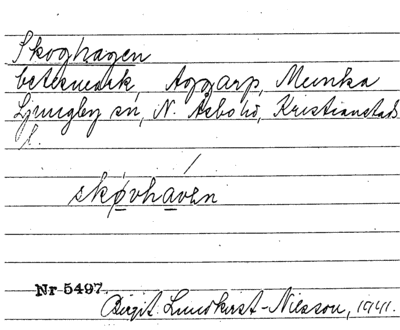 Skoghagen
betesmark, Aggarp, Munka
Ljungby sn, N. Åsbo hd, Kristianstads
l.
skøvhavén
Nr 5497
Birgit Lundkvist-Nilsson, 1941.